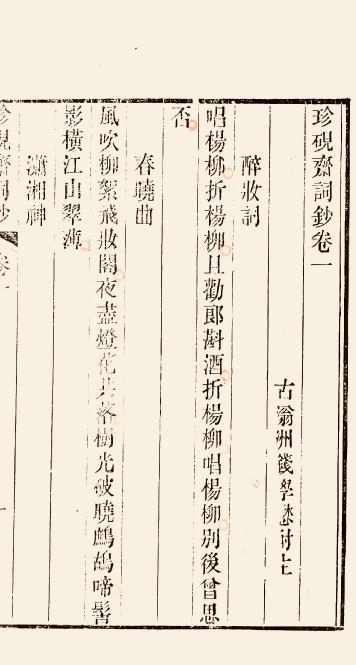 珍硯齋詞鈔卷一
古翁洲
醉妝詞
唱楊柳折楊柳且勸郎斟酒折楊柳唱楊柳別後曾思
否
春曉曲
風吹柳絮飛妝閣夜盡燈花共落樹光破曉鷓鴣啼髻
影橫江山翠薄
瀟湘神
珍硯齋詞鈔 卷一